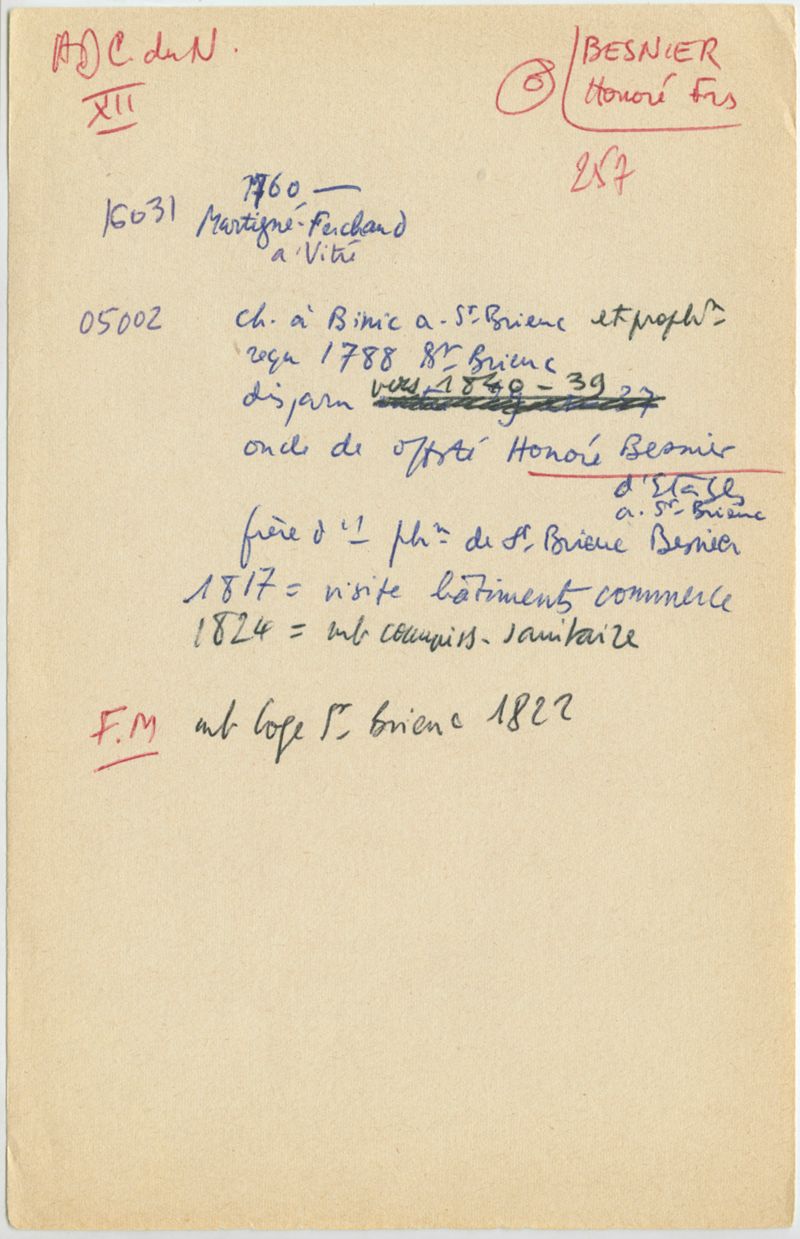 AD C. du N.
XII
BESNIER
Honoré Frs
257
16031
1760 —
Martigné-Ferchaud
a. Vitré
05002
ch. à Binic a. St-Brieuc et
reçu 1788 St Brieuc
disparu vers 1840 - 39
oncle de Honoré Besnier
d'Etables
a. St-Brieuc
frère d'1 phn de St. Brieuc Besnier
1817 = visite bâtiments commerce
1824 = mb commiss. sanitaire
F.M mb loge St. Brieuc 1822